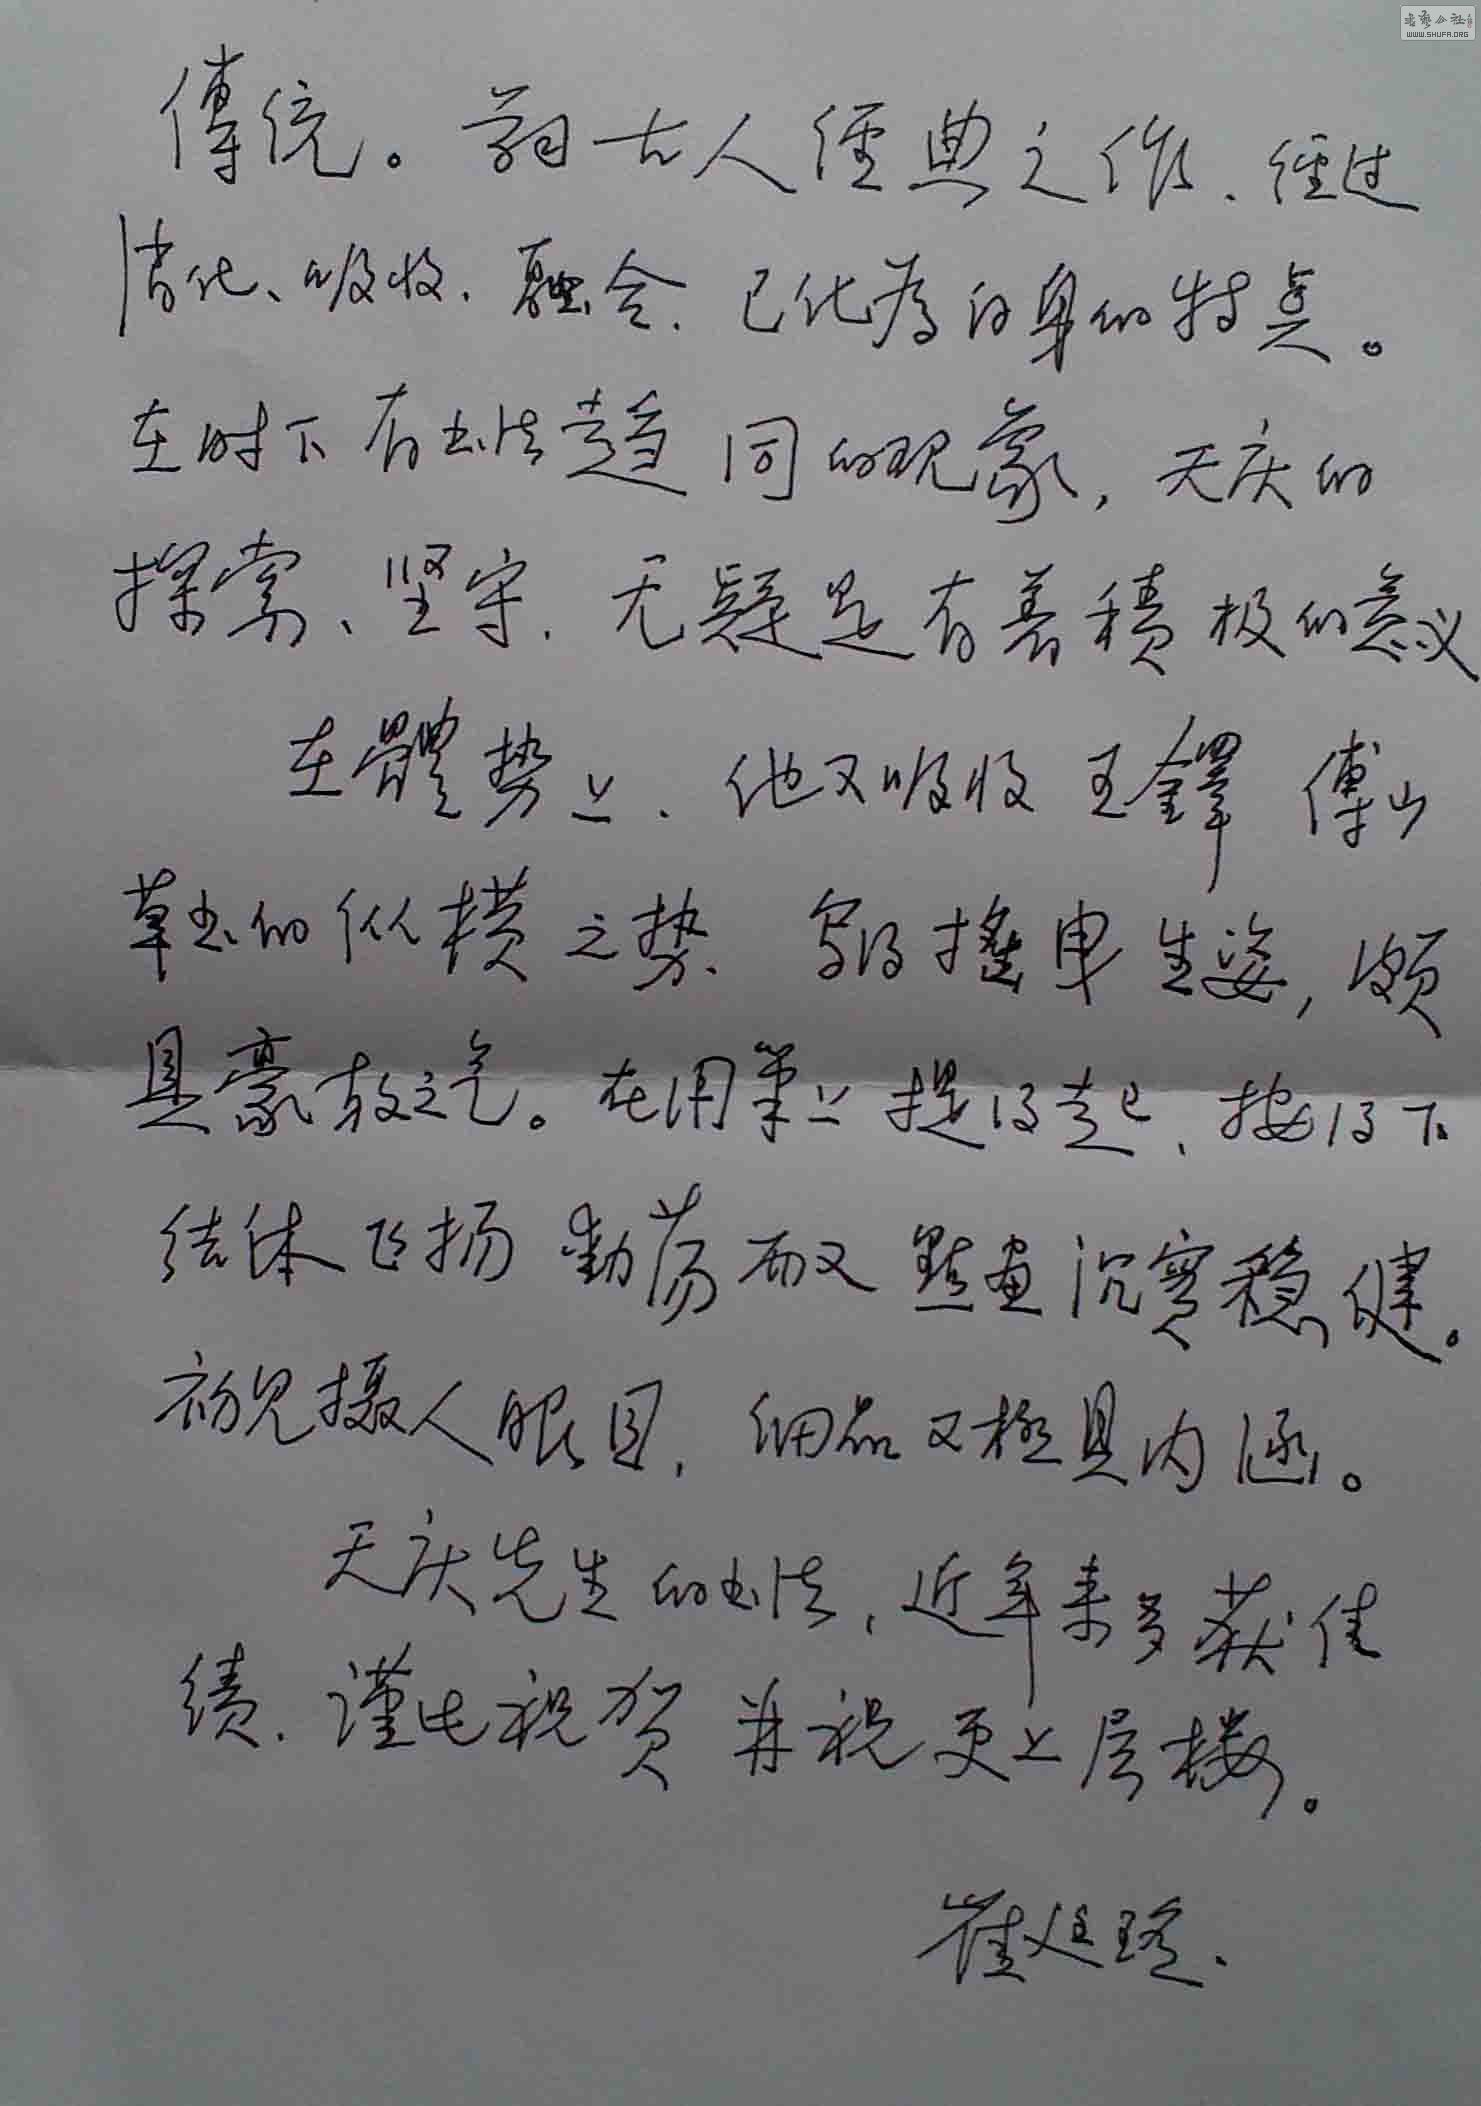 書法公社
WWW.SHUFA.ORG
傳统。 古人經典之作、經过
消化、吸收、融会、已化為自身的特点。
在时下有书法趋同的现象，天庆的
探索、坚守、无疑是有着積极的意义
在體势上、他又吸收王鐸 傅山
草书的纵横之势、写得摇曳生姿，颇
具豪放之气。在用筆上提得起、按得下
结体飞扬動荡而又點画沉實穩健。
初见摄人眼目，细品又極具内涵。
天庆先生的书法，近年来多获佳
绩、谨此祝贺并祝更上层楼。
崔廷瑶、